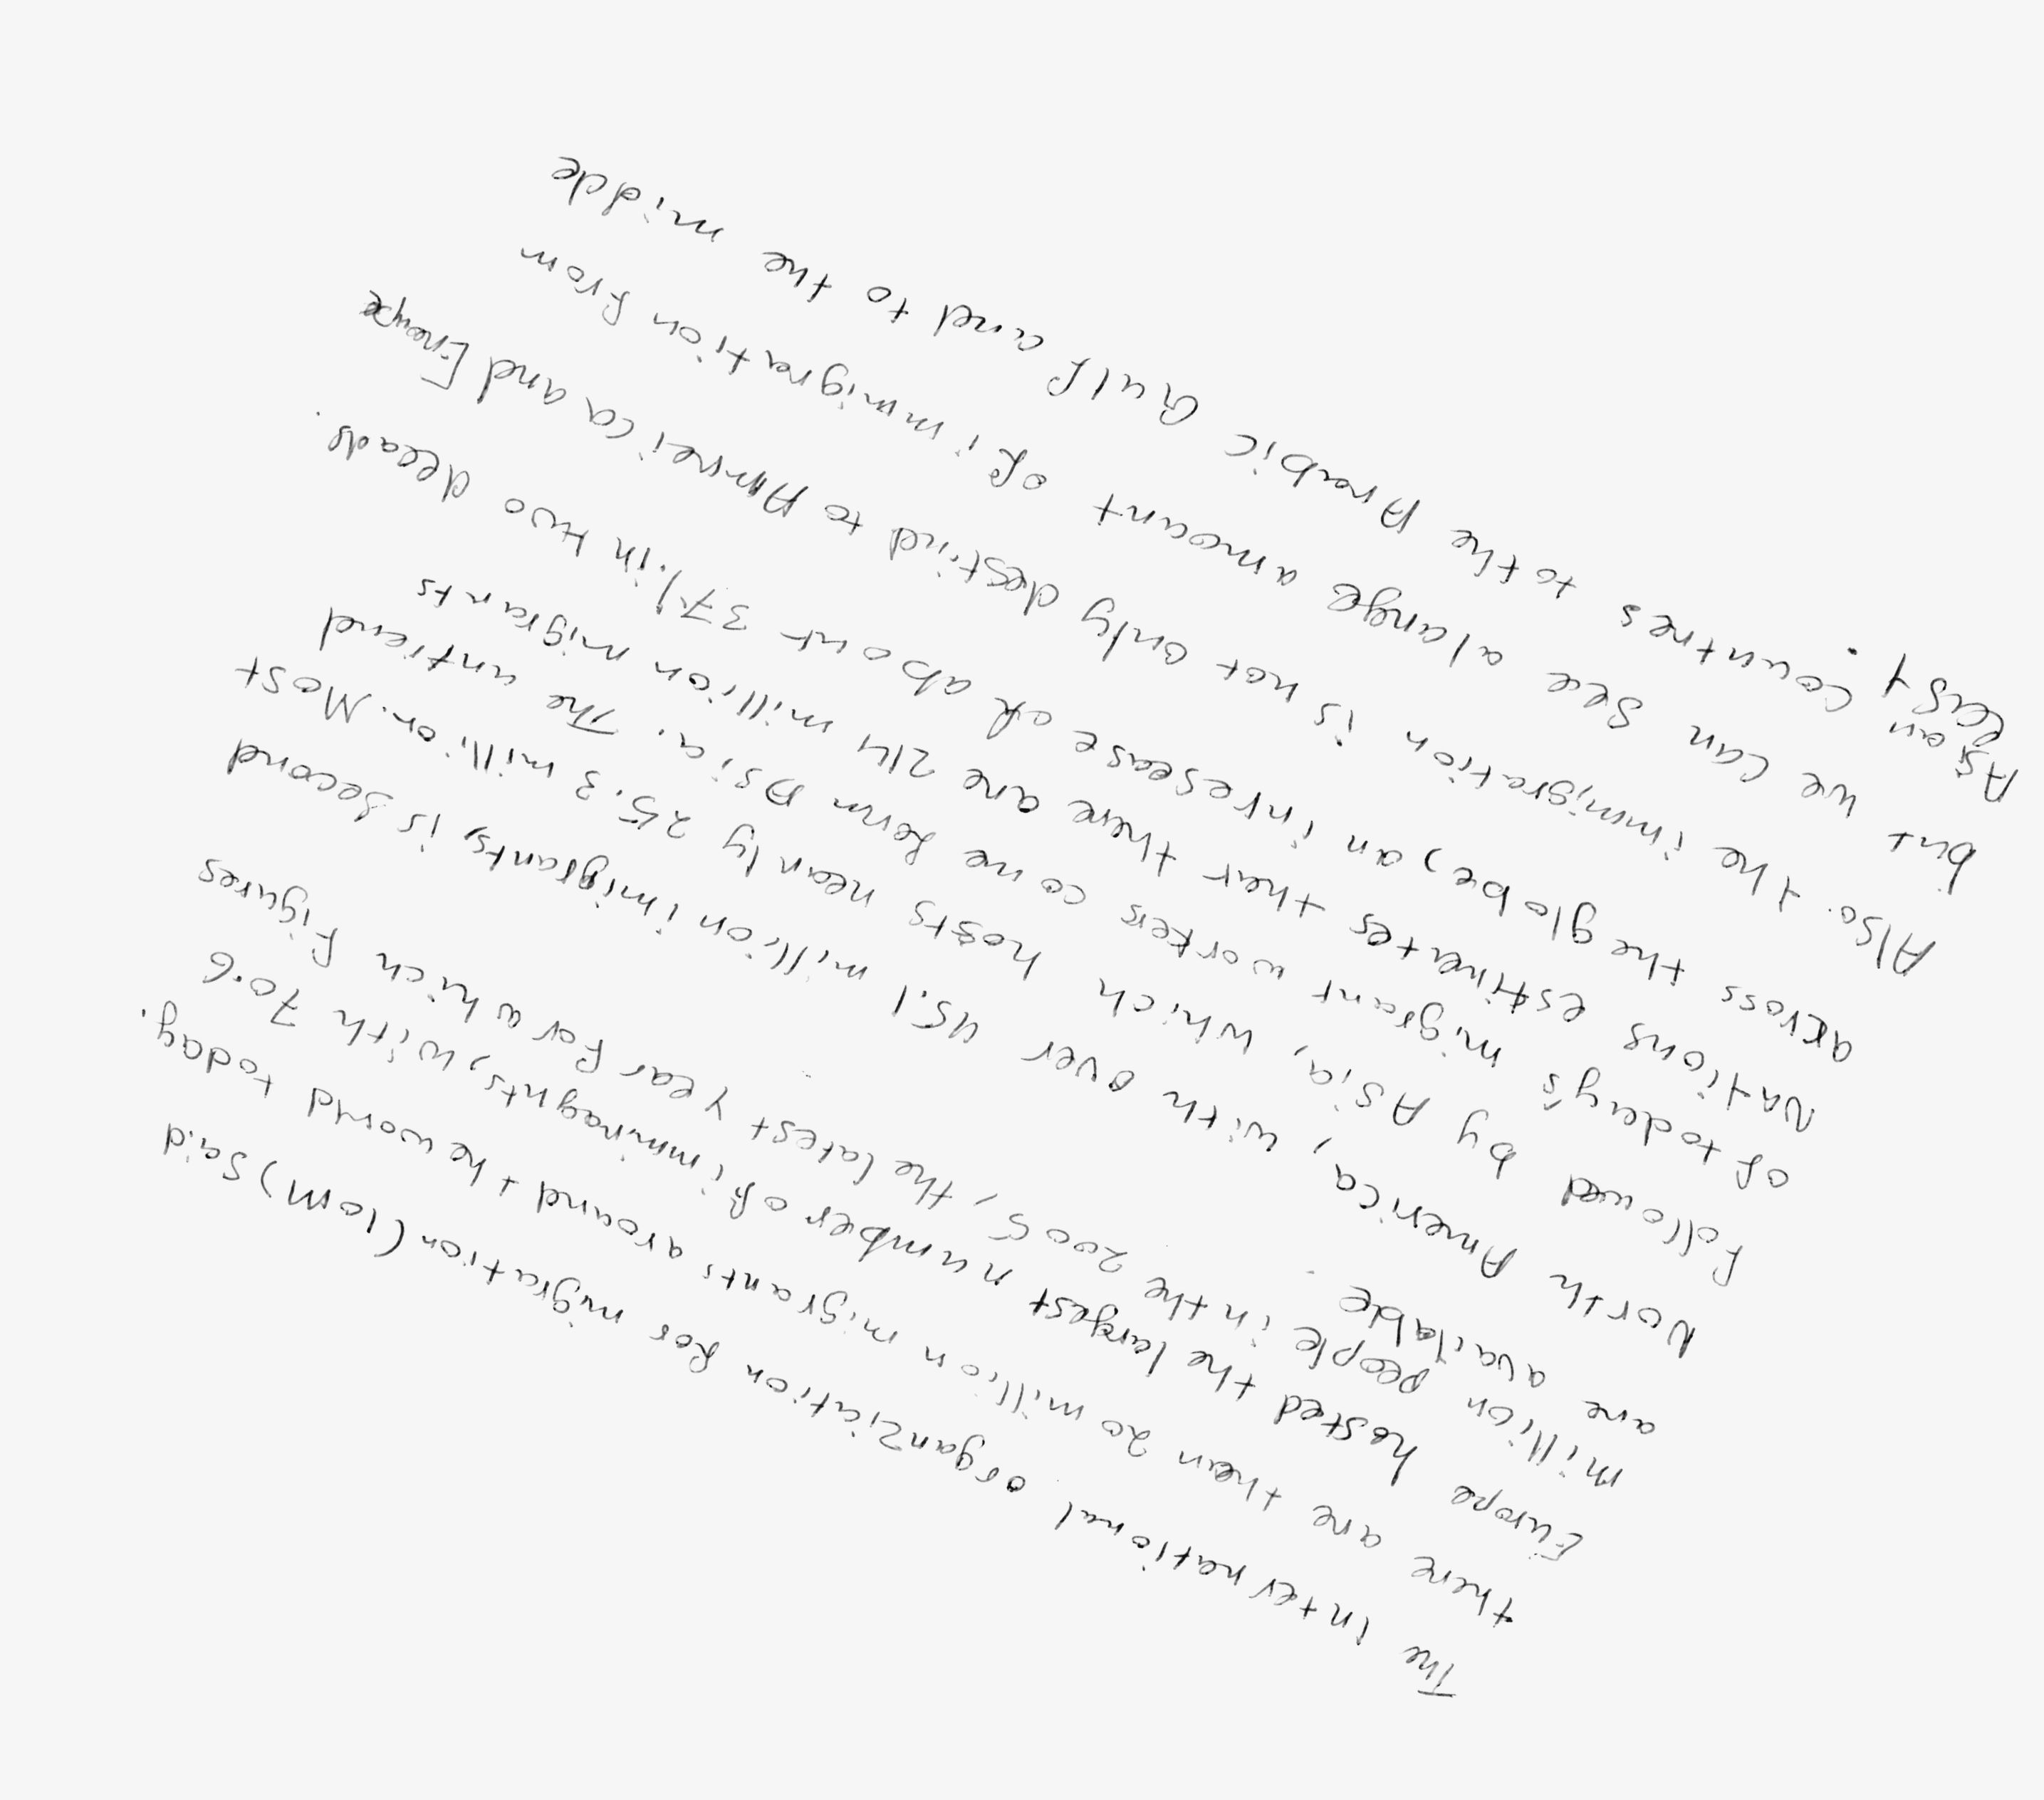 The international organziation for migration (IoM) said
there are than 20 million migrants around the world today.
Europe hosted the largest number of imminagnts, with 70.6
million people in the 2005, the latest year for which figures
are available.
North America, with over 45.1 million imigrants, is second
followed by Asia, which hosts nearly 25.3 million. Most
of today's migrant workers come form Asia. The untiend
Nations estimates that there are 214 million migrants
across the globe, an intresease of about 37% in two decads.
Also the immigration is not only destined to Amreica and Europe
but we can see a large amount of immigration from
Asian countres to the Arabic Gulf and to the middle
easy.